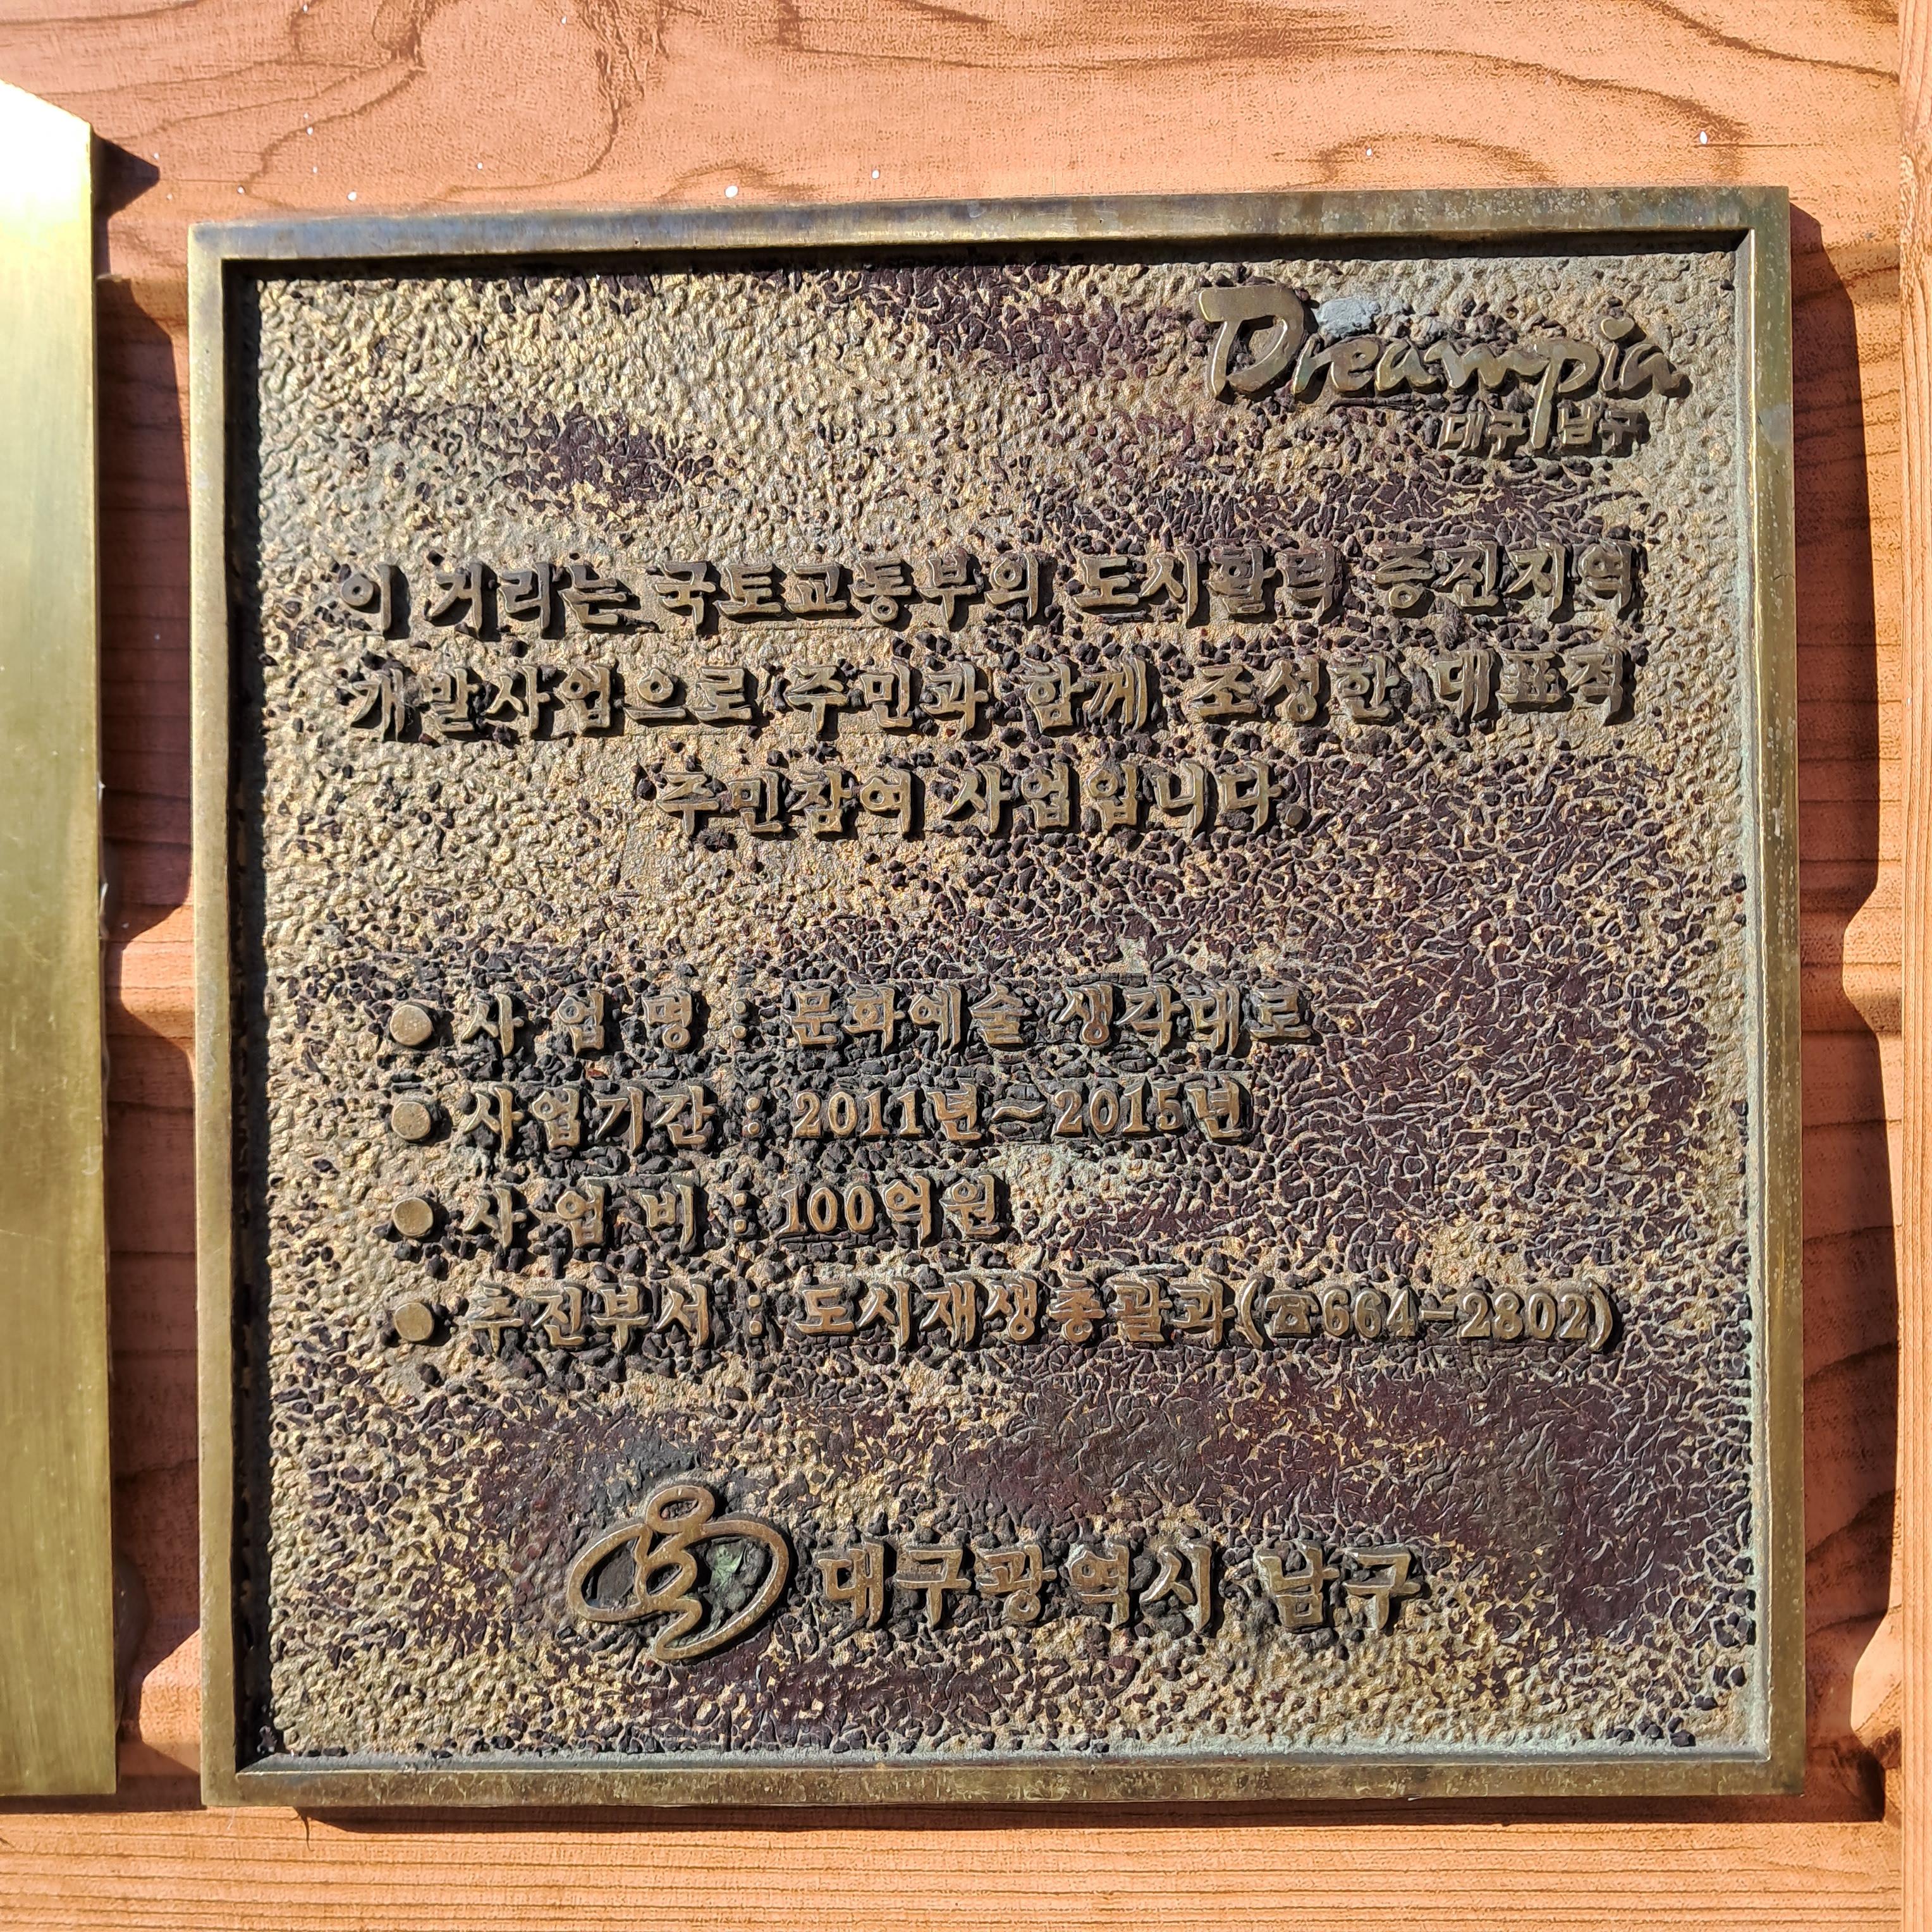 Dreampia
대구 남구
이 거리는 국토교통부의 도시활력 증진지역
개발사업으로 주민과 함께 조성한 대표적
주민참여 사업입니다.
● 사 업 명 : 문화예술 생각대로
● 사업기간 : 2011년~2015년
● 사 업 비 : 100억원
● 추진부서 : 도시재생총괄과(☎664-2802)
대구광역시 남구